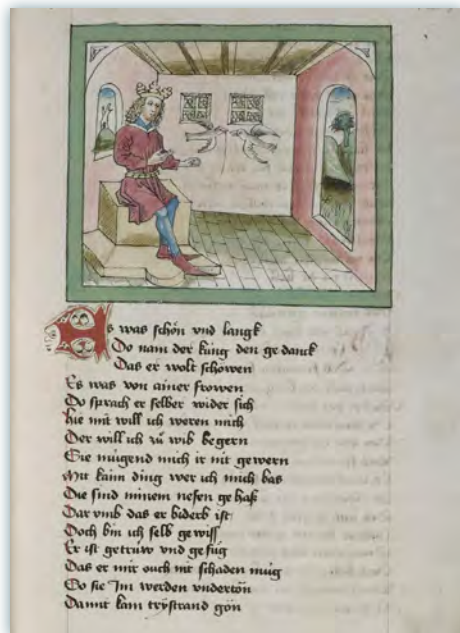 Es was schön vnd langk
Do nam der küng den gedanck
Das er wolt schowen
Es was von ainer frowen
Do sprach er selber wider sich
hie mit will ich weren mich
Der will ich zü wib begern
Sie mügend mich ir nit gewern
Mit kainn ding wer ich mich bas
Die sind minem nefen gehaß
Dar vmb das er biderb ist
Doch bin ich selb gewiss
Er ist getrüw vnd gefüg
Das er mir ouch nit schaden müg
So sie Im werden vndertön
Damit kam trystrand gön